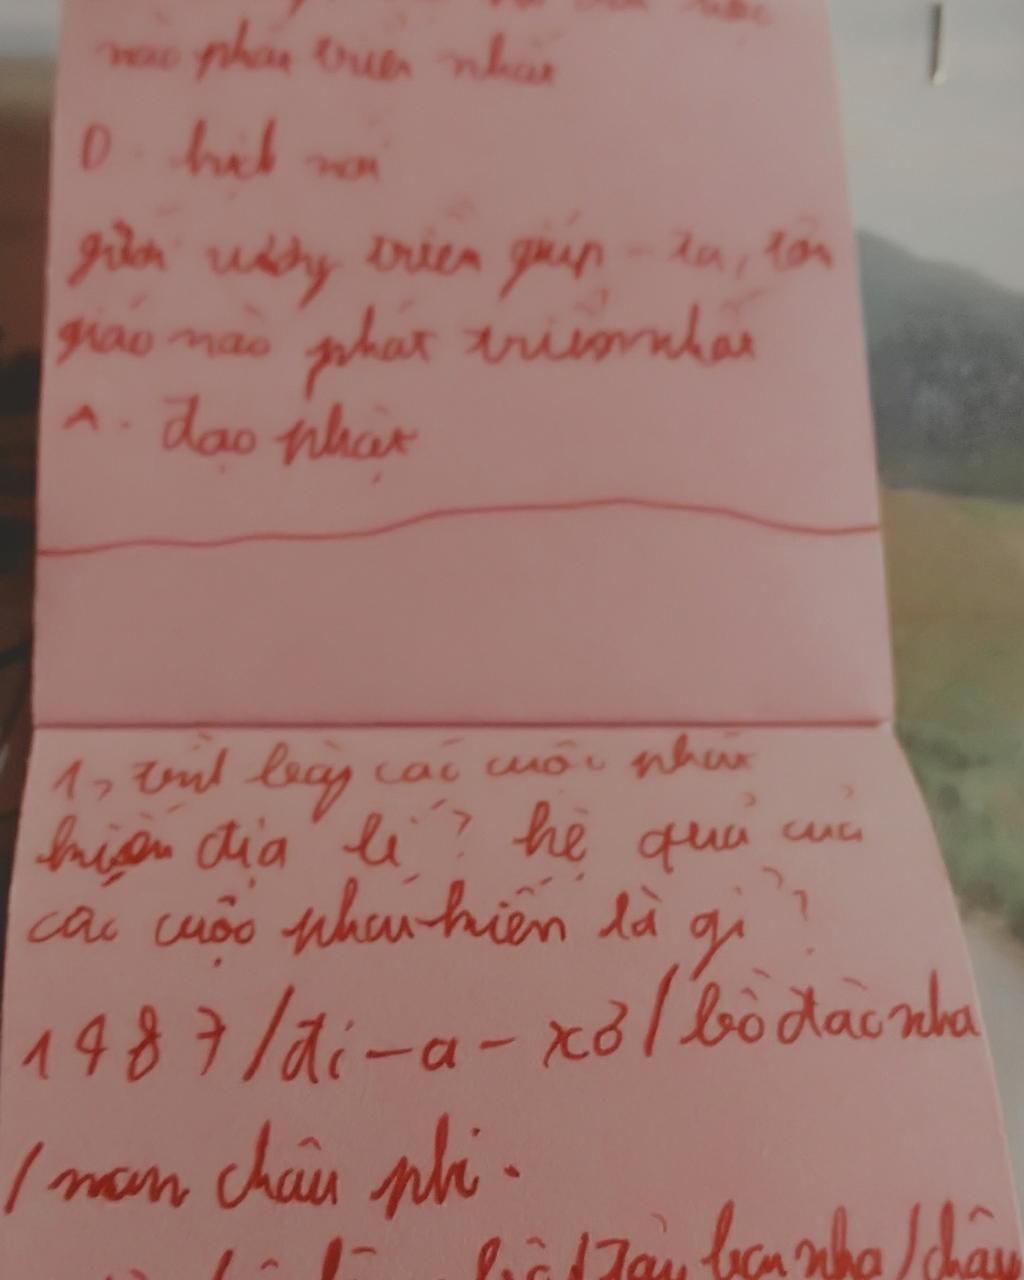 nào phát triển nhất
D. kịch nói
giữa vương triều giúp-ta, tôn
giáo nào phát triển nhất
A. Đạo phật
1, trình bày các cuộc phát
kiến địa lí? hệ quả của
các cuộc phát kiến là gì?
1487/đi-a-xơ/bồ đào nha
/nam châu phi.
Tây ban nha/châu